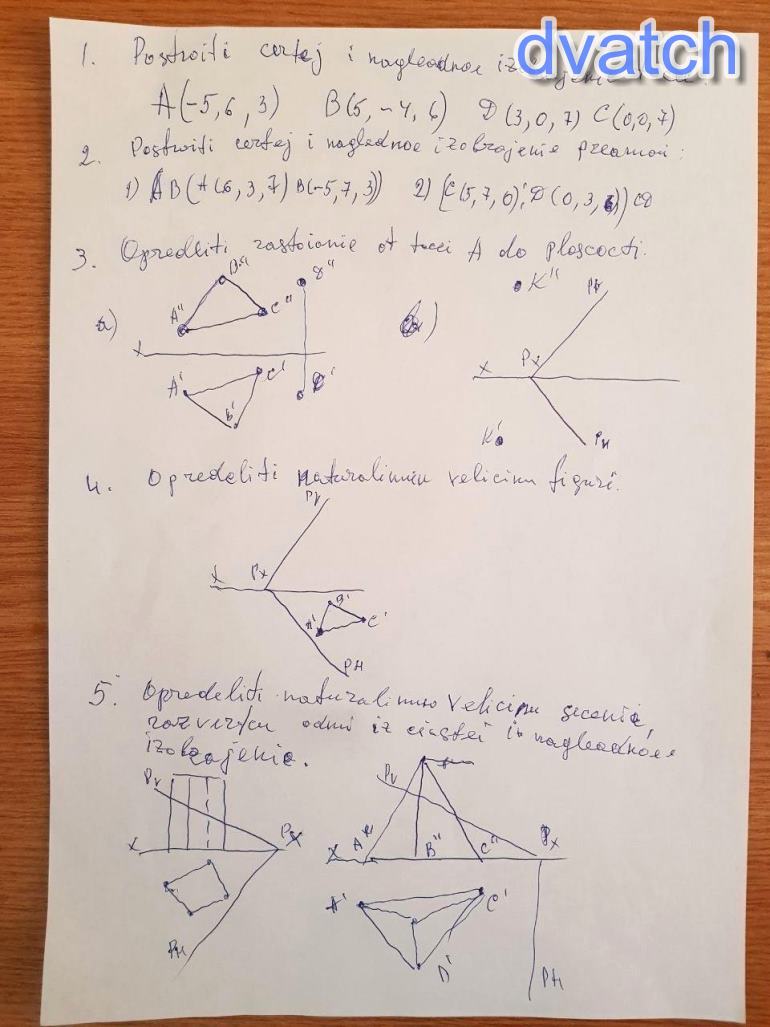 dvatch
1. Postroiti certej i nagleadnoe
A(-5,6,3) B(5,-4,6) D(3,0,7) C(0,0,7)
2. Postroiti certej i nagleadnoe izobrajenie preamoi:
1) AB(A(6,3,7) B(-5,7,3)) 2) (C(5,7,0); D(0,3,6)) CD
3. Opredeliti rastoianie ot tocci A do ploscocti.
B" K" Pv
a) A" C"
X Px
A' C' X
B' K' PH
4. Opredeliti velicinu figuri.
Pv
X Px
A' B' C'
PH
5. Opredeliti naturalinuio velicinu secenia,
razvertcu odnoi iz ciastei i nagleadnoe
izobrajenie.
Pv Pv
X Px X A" B" C" Px
A' C'
PH D' PH